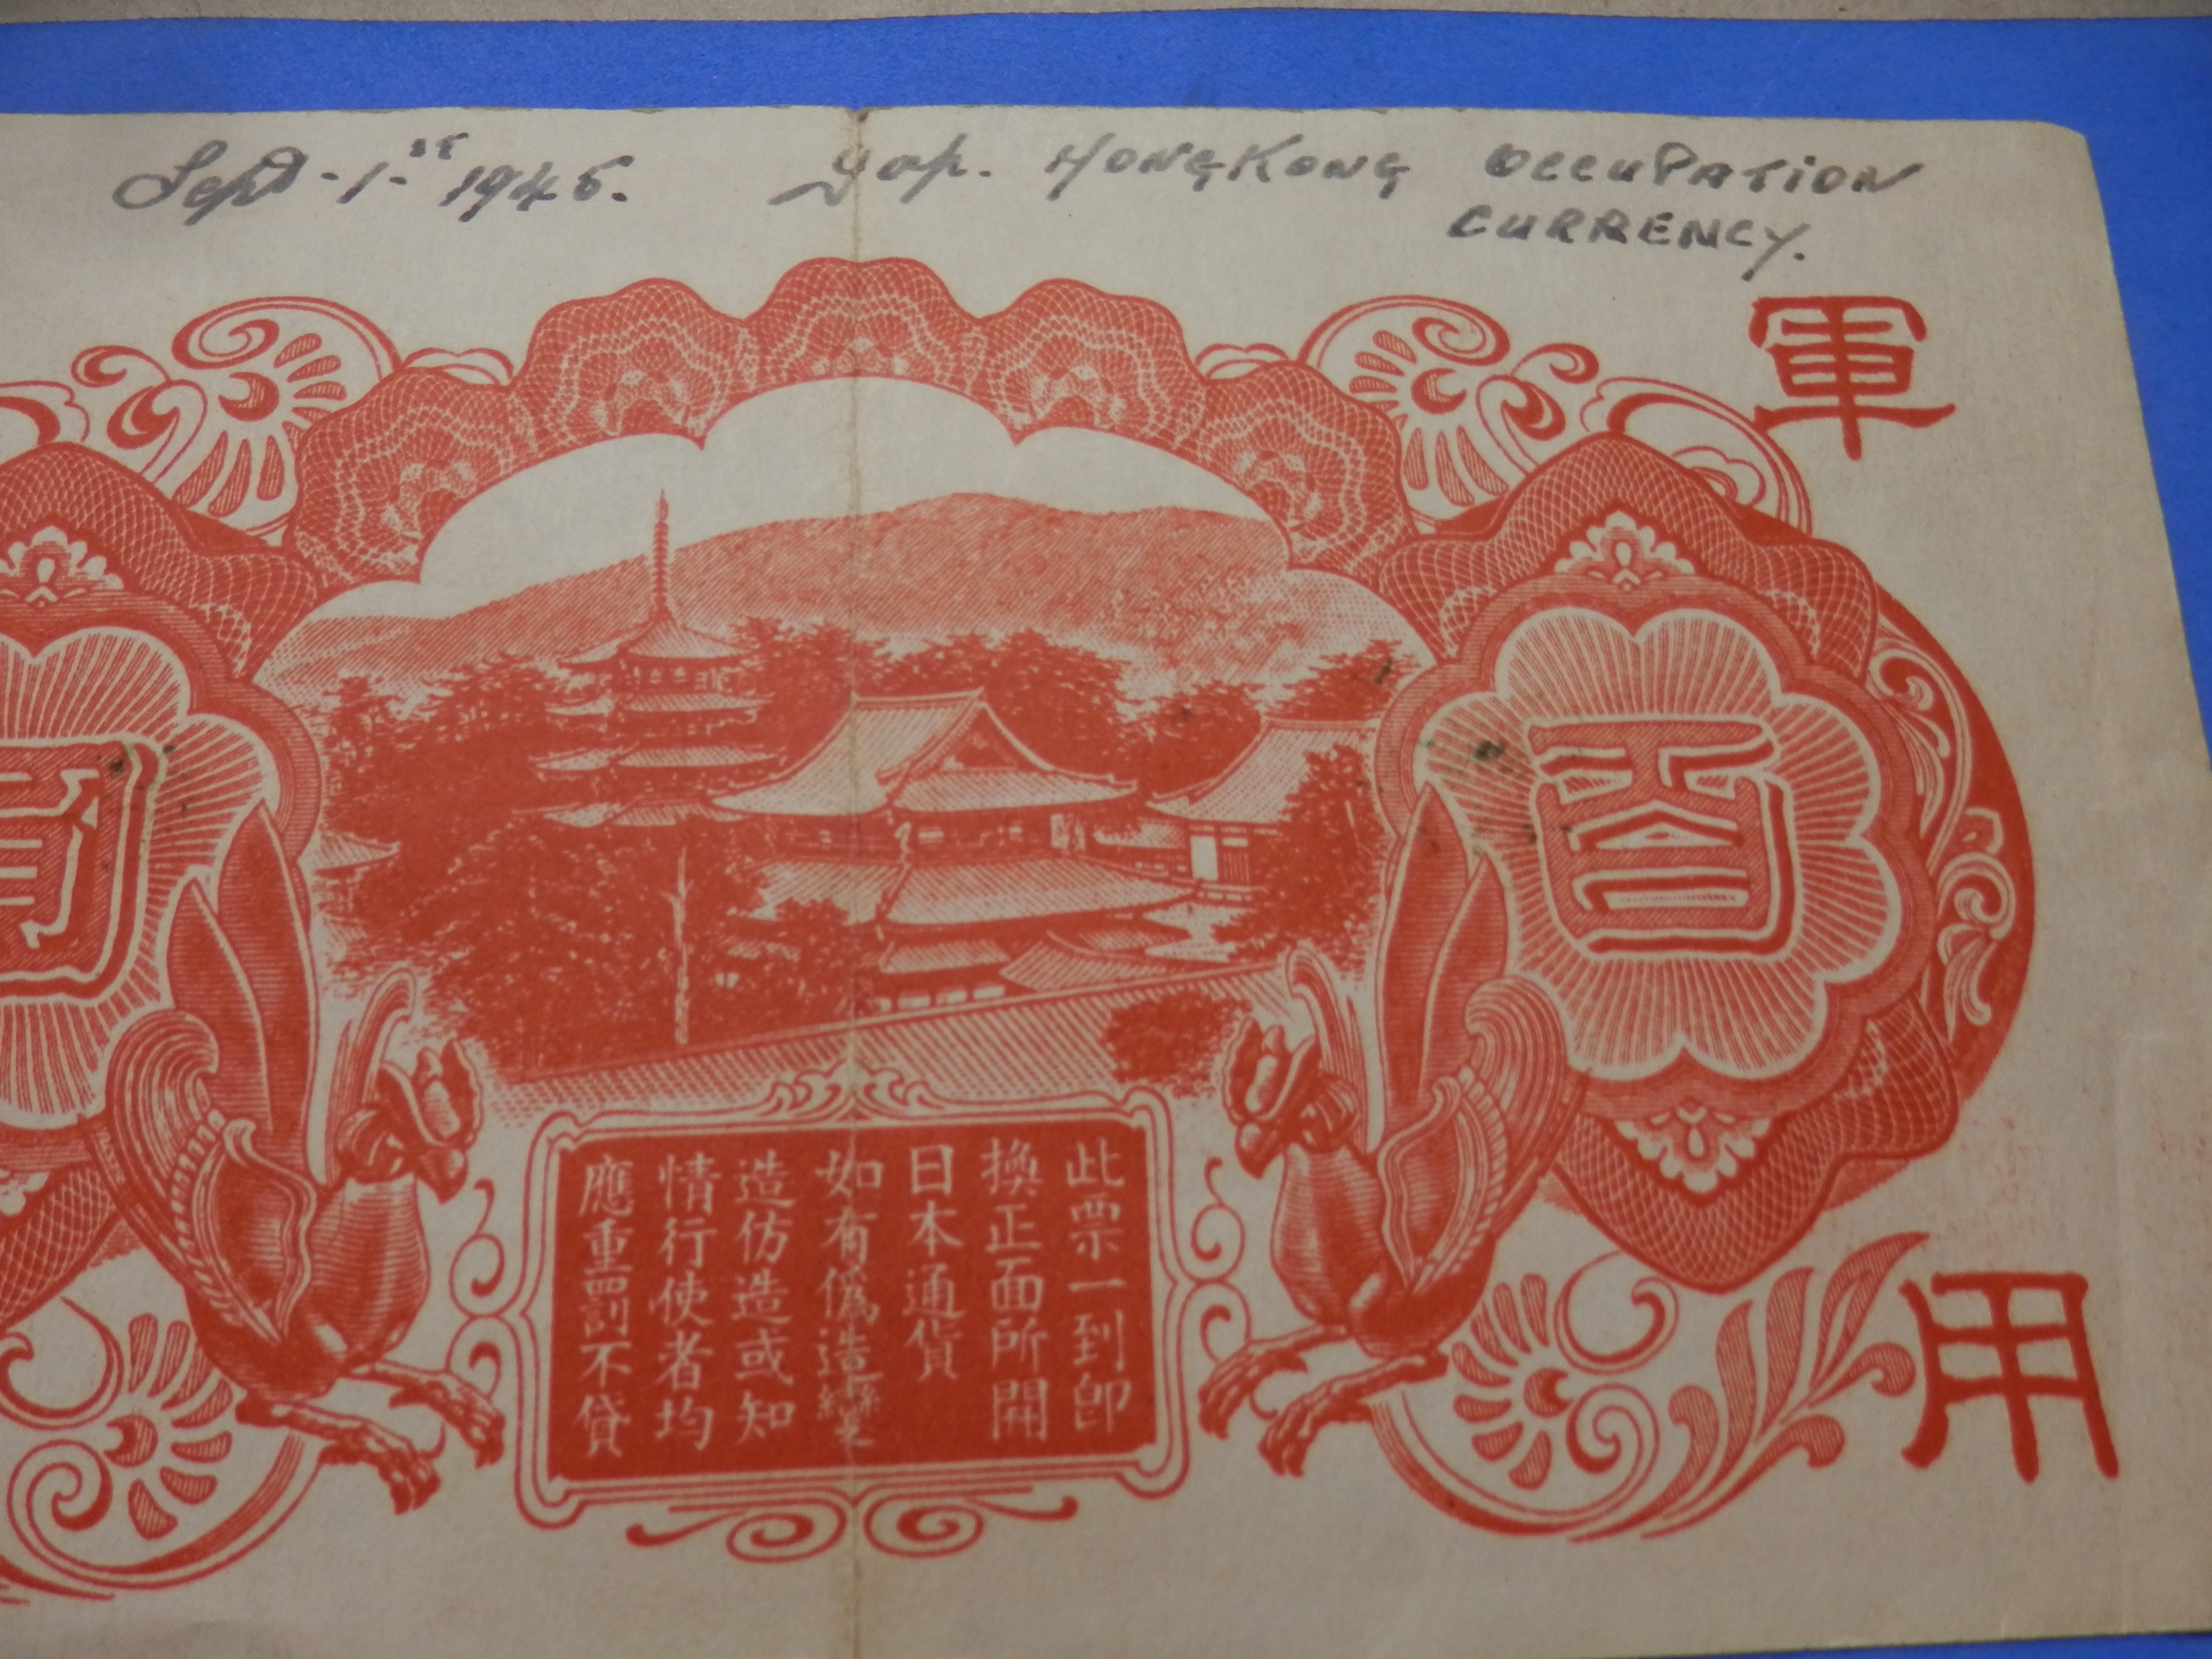 Sept - 1st 1945. Jap. HONGKONG OCCUPATION
CURRENCY.
軍
百
用
此票一到即
換正面所開
日本通貨
如有偽造變
造仿造或知
情行使者均
應重罰不貸